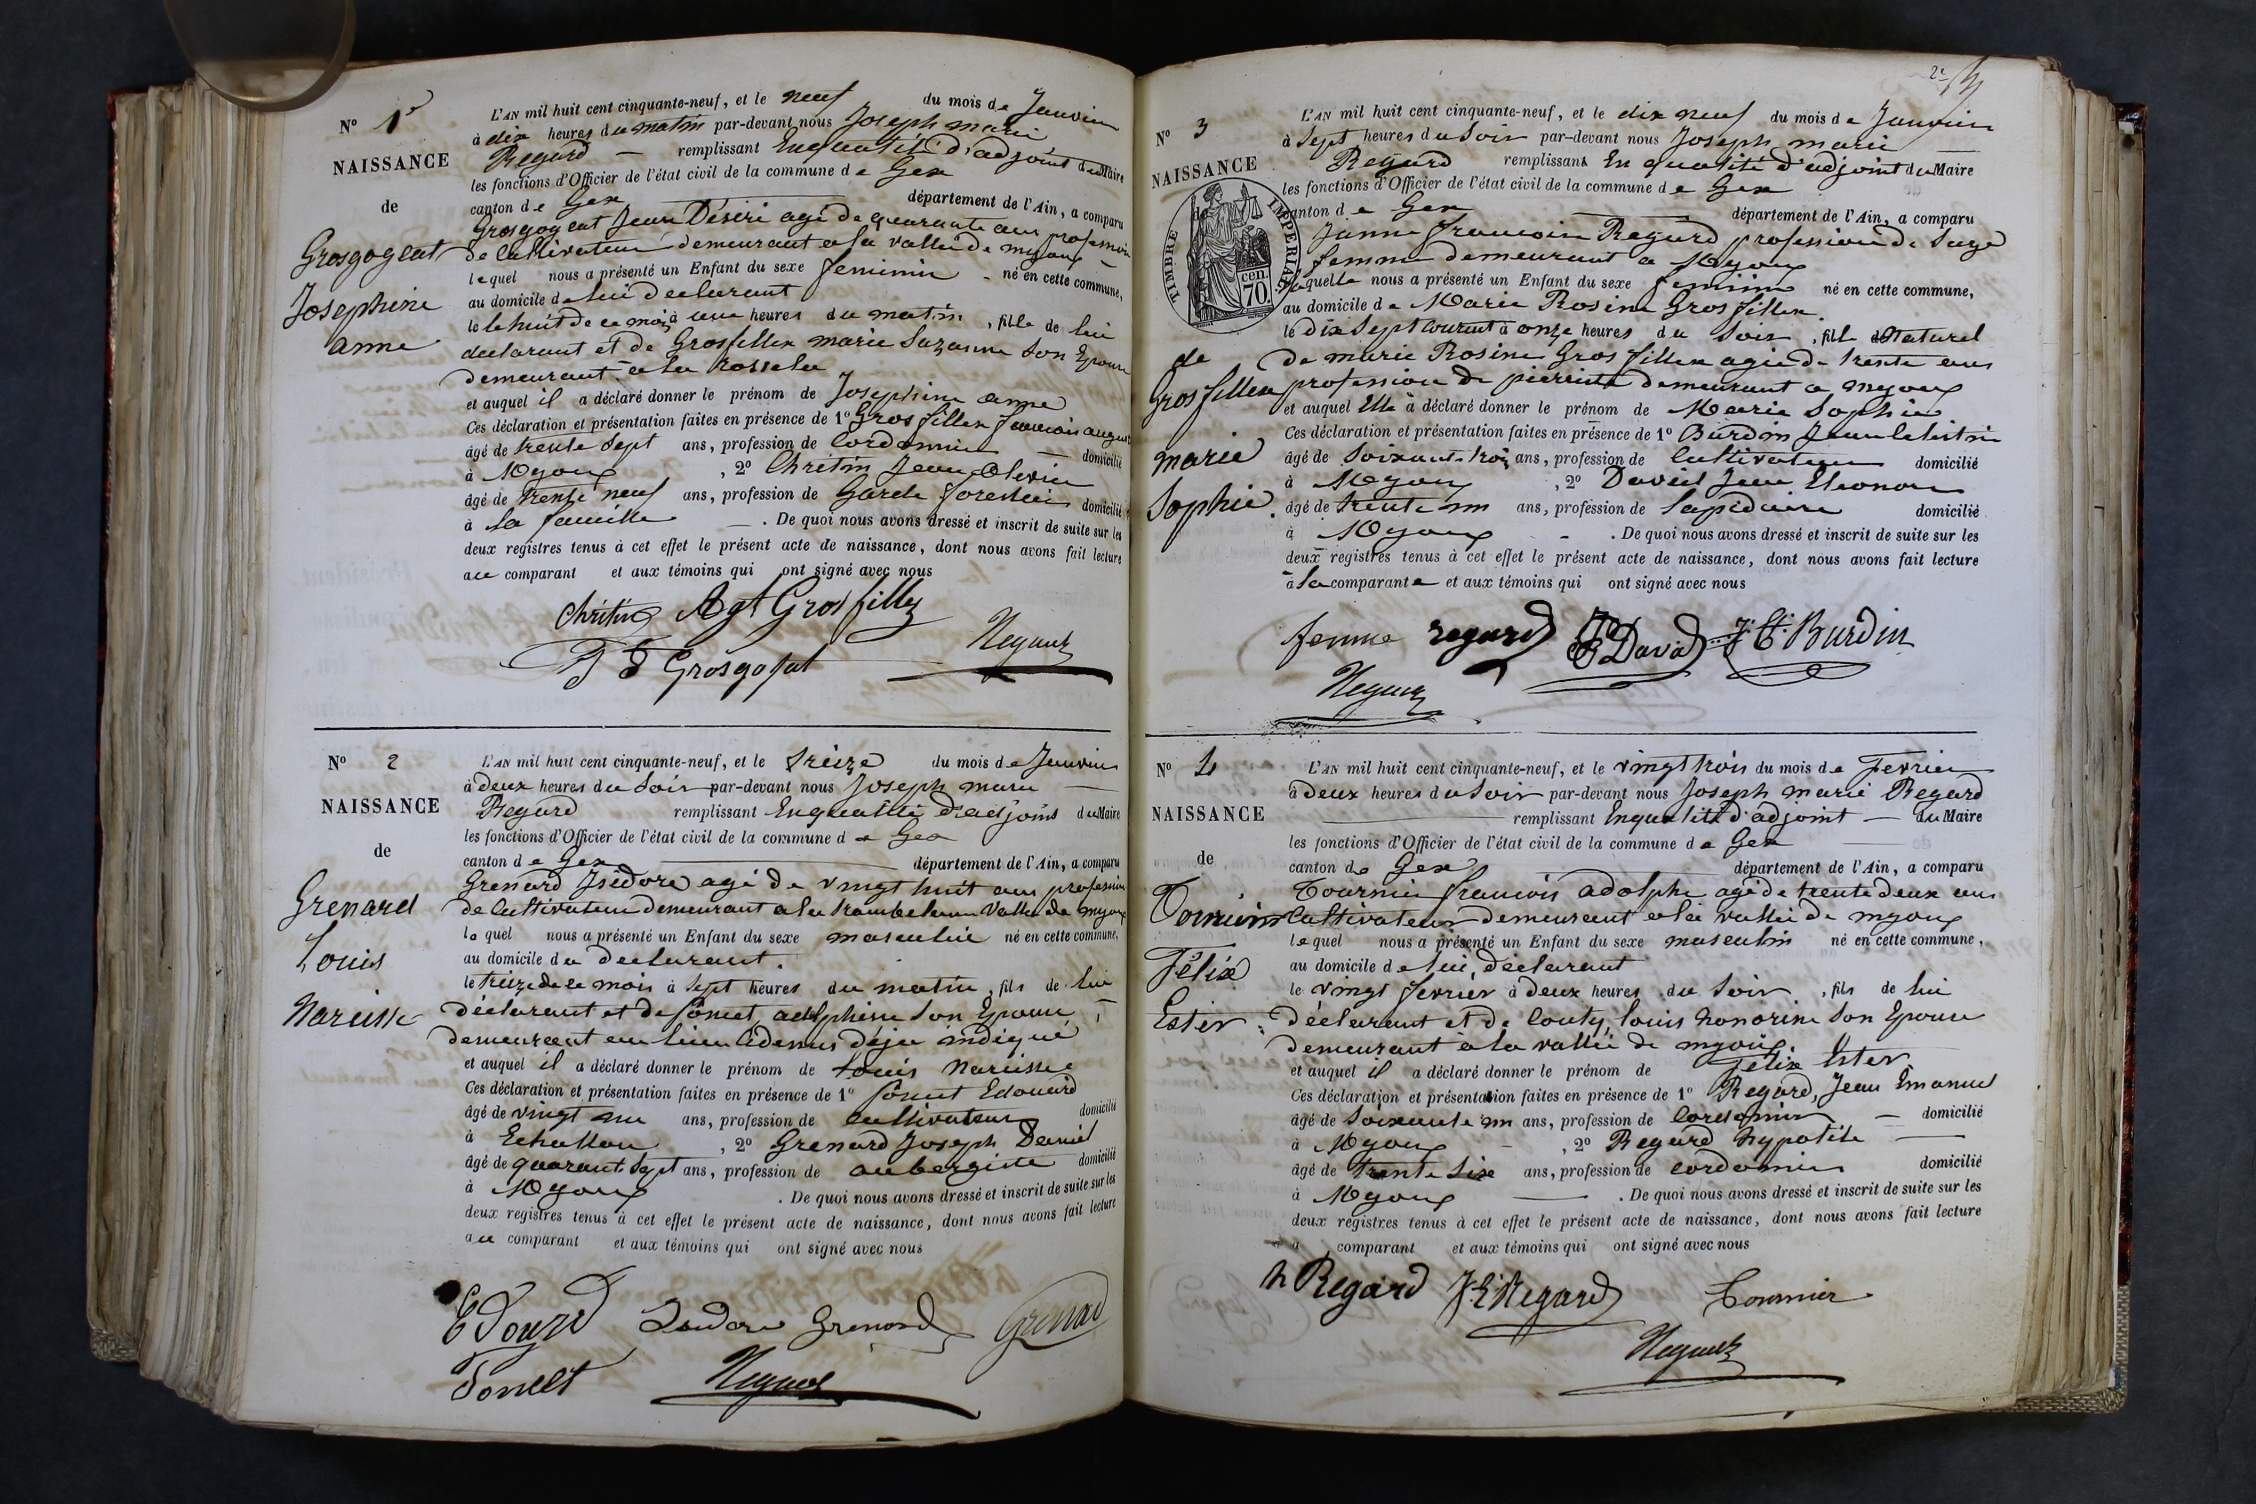 N° 1er
NAISSANCE
de
Grosgogeat
Josephine
anne
L'AN mil huit cent cinquante-neuf, et le neuf du mois de Janvier
à dix heures du matin par-devant nous Joseph marie
Regard — remplissant En qualité d'adjoint du Maire
les fonctions d'Officier de l'état civil de la commune de Gex
canton de Gex département de l'Ain, a comparu
Grosgogeat Jean Désiré agé de quarante ans profession
de Cultivateur demeurant a la vallée de mijoux
lequel nous a présenté un Enfant du sexe feminin né en cette commune,
au domicile de lui declarant
le le huit de ce mois à une heures du matin, fille de lui
declarant et de Grosfillex marie Suzanne son Epouse
demeurant a la
et auquel il a déclaré donner le prénom de Josephine anne
Ces déclaration et présentation faites en présence de 1° Grosfillex francois august
âgé de trente sept ans, profession de Cordonnier — domicilié
à Mijoux, 2° Chritin Jean
âgé de trente neuf ans, profession de Garde forestier domicilié
à la faucille — . De quoi nous avons dressé et inscrit de suite sur les
deux registres tenus à cet effet le présent acte de naissance, dont nous avons fait lecture
au comparant et aux témoins qui ont signé avec nous
Chritin Agt Grosfillex
J D Grosgogeat Regard
N° 2
NAISSANCE
de
Grenard
Louis
Narcisse
L'AN mil huit cent cinquante-neuf, et le treize du mois de Janvier
à deux heures du Soir par-devant nous Joseph marie
Regard remplissant En qualité d'adjoint du Maire
les fonctions d'Officier de l'état civil de la commune de Gex
canton de Gex département de l'Ain, a comparu
Grenard Isidore agé de vingt huit ans profession
de Cultivateur demeurant a la vallée de mijoux
lequel nous a présenté un Enfant du sexe masculin né en cette commune,
au domicile du declarant.
le treize de ce mois à Sept heures du matin, fils de lui
déclarant et de Poncet adelphine Son Epouse
demeurant au lieu cidessus déja indiqué
et auquel il a déclaré donner le prénom de Louis Narcisse
Ces déclaration et présentation faites en présence de 1° Poncet Edouard
âgé de vingt un ans, profession de cultivateur domicilié
à Echallon, 2° Grenard Joseph Daniel
âgé de quarant Sept ans, profession de aubergiste domicilié
à Mijoux . De quoi nous avons dressé et inscrit de suite sur les
deux registres tenus à cet effet le présent acte de naissance, dont nous avons fait lecture
au comparant et aux témoins qui ont signé avec nous
Edouard Isidore Grenard Grenard
Poncet Regard
2e
N° 3
NAISSANCE
TIMBRE IMPÉRIAL
70 cen.
de
Grosfillex
marie
Sophie.
L'AN mil huit cent cinquante-neuf, et le dix neuf du mois de Janvier
à Sept heures du Soir par-devant nous Joseph marie
Regard remplissant En qualité d'adjoint du Maire
les fonctions d'Officier de l'état civil de la commune de Gex
canton de Gex département de l'Ain, a comparu
Janne francoise Regard profession de Sage
femme demeurant a Mijoux
laquelle nous a présenté un Enfant du sexe feminin né en cette commune,
au domicile de Marie Rosine Grosfillex
le dix Sept courant à onze heures du Soir, fille Naturel
de marie Rosine Grosfillex agée de trente ans
profession de pierriste demeurant a mijoux
et auquel Elle à déclaré donner le prénom de Marie Sophie
Ces déclaration et présentation faites en présence de 1° Burdin Jean Celestin
âgé de Soixante trois ans, profession de Cultivateur domicilié
à Mijoux, 2° David Jean Eleonor
âgé de trente un ans, profession de Lapidaire domicilié
à Mijoux - . De quoi nous avons dressé et inscrit de suite sur les
deux registres tenus à cet effet le présent acte de naissance, dont nous avons fait lecture
à la comparante et aux témoins qui ont signé avec nous
femme regard JE David J Ct Burdin
Regard
N° 4
NAISSANCE
de
Tournier
Félix
Ester
L'AN mil huit cent cinquante-neuf, et le vingt trois du mois de Fevrier
à deux heures du Soir par-devant nous Joseph marie Regard
remplissant En qualité d'adjoint — du Maire
les fonctions d'Officier de l'état civil de la commune de Gex
canton de Gex département de l'Ain, a comparu
Tournier francois adolphe agé de trente deux ans
Cultivateur demeurant a la vallée de mijoux
lequel nous a présenté un Enfant du sexe masculin né en cette commune,
au domicile de lui déclarant
le vingt fevrier à deux heures du Soir, fils de lui
déclarant et de Couty, louis honorine Son Epouse
demeurant a la vallée de mijoux.
et auquel il a déclaré donner le prénom de Félix Ester
Ces déclaration et présentation faites en présence de 1° Regard, Jean Emanuel
âgé de Soixante un ans, profession de Cordonnier — domicilié
à Mijoux, 2° Regard hypolite
âgé de trente Six ans, profession de cordonnier domicilié
à Mijoux — . De quoi nous avons dressé et inscrit de suite sur les
deux registres tenus à cet effet le présent acte de naissance, dont nous avons fait lecture
a comparant et aux témoins qui ont signé avec nous
h Regard J. E Regard Tournier
Regard